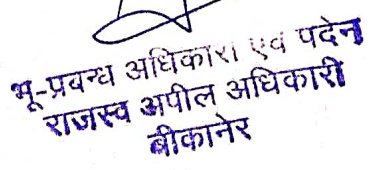 भू-प्रबन्ध अधिकारी एवं पदेन
राजस्व अपील अधिकारी
बीकानेर